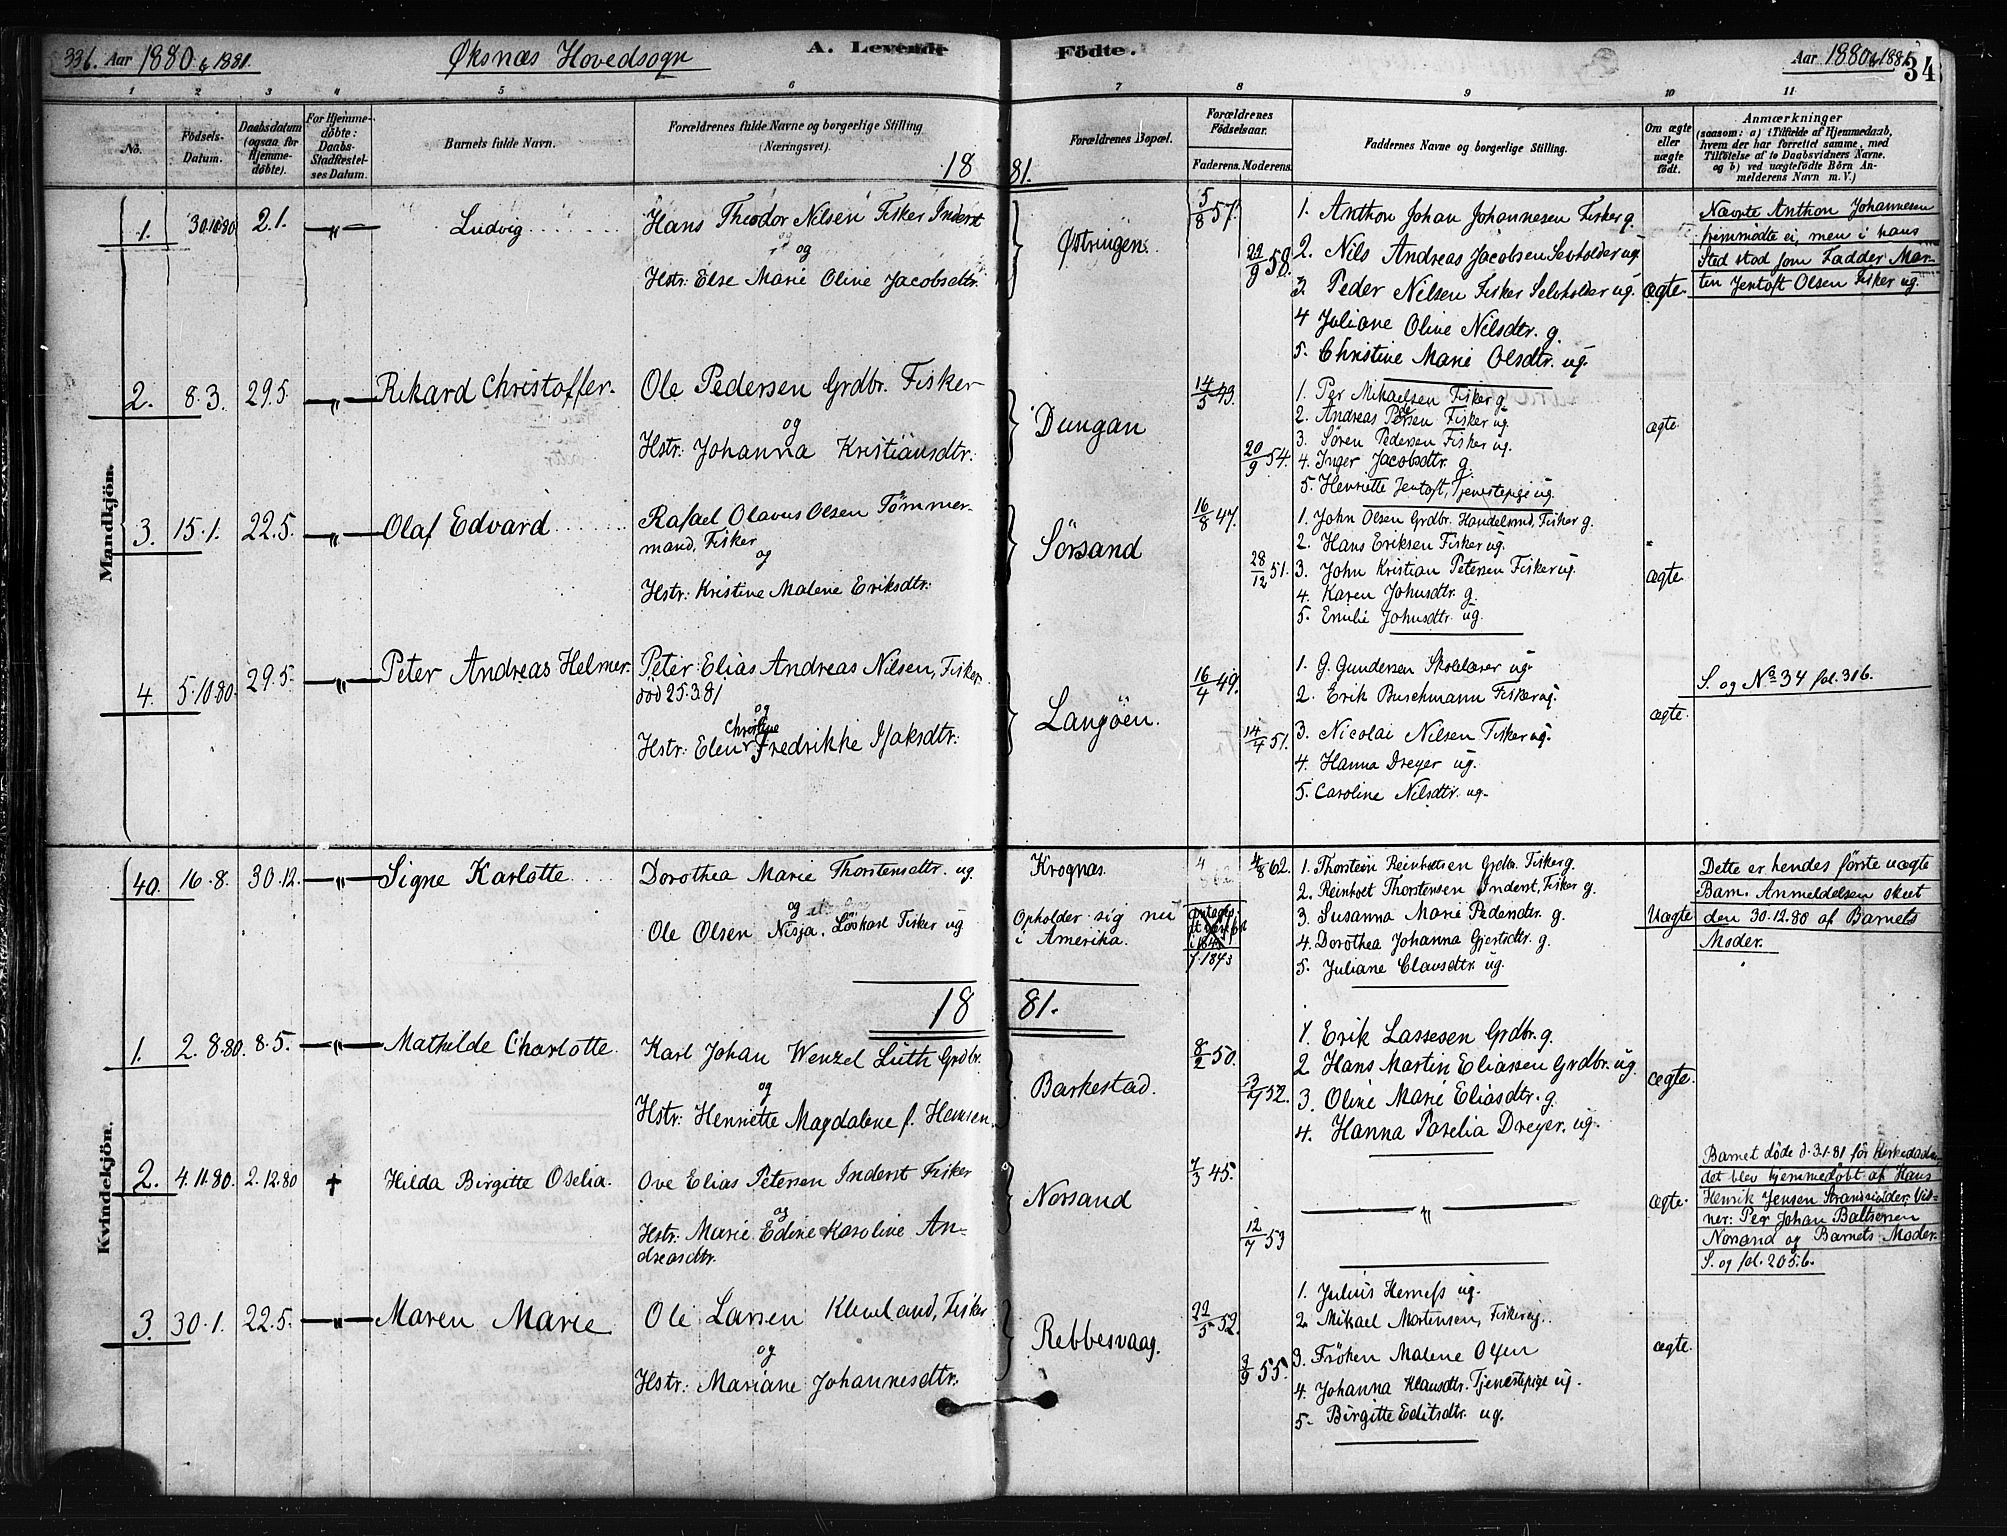 336. Aar 1880 & 1881. Øksnæs Hovedsogn A. Levende Födte. Aar 1880 & 1881 34
1 2 3 4 5 6 7 8 9 10 11
No. Födsels-Datum. Daabsdatum (ogsaa for Hjemme-döbte). For Hjemme-döbte: Daabs-Stadfæstel-ses Datum. Barnets fulde Navn. Forældrenes fulde Navne og borgerlige Stilling (Næringsvei). Forældrenes Bopæl. Forældrenes Födselsaar. Faderens. Moderens. Faddernes Navne og borgerlige Stilling. Om ægte eller uægte födt.
Anmærkninger
(saasom: a) i Tilfælde af Hjemmedaab,
hvem der har forrettet samme, med
Tilföielse af to Daabsvidners Navne.
og b) ved uægtefödte Börn An-
melderens Navn m. V.)
18 81.
Mandkjön.
1. 30.10.80 2.1. —„— Ludvig
Hans Theodor Nilsen Fisker Inderst
og
Hstr: Else Marie Oline Jacobsdtr.
Østringen.
5/8 57. 22/9 58.
1. Anthon Johan Johannesen Fisker g.
2. Nils Andreas Jacobsen Selvholder ug.
3. Peder Nilsen Fisker Selvholder ug.
4 Juliane Oline Nilsdtr. g.
5. Christine Marie Olsdtr. ug.
ægte.
Nævnte Anthon Johannesen
fremmödte ei, men i hans
Sted stod som Fadder Mar-
ten Jentoft Olsen Fisker ug.
2. 8.3. 29.5. —„— Rikard Christoffer.
Ole Pedersen Grdbr. Fisker
og
Hstr: Johanna Kristiansdtr.
Dungan
14/5 49. 20/9 54.
1. Per Mikaelsen Fisker g.
2. Andreas Pedersen Fisker ug.
3. Søren Pedersen Fisker ug.
4. Inger Jacobsdtr. g.
5. Henriette Jentoft, Tjenestepige ug.
ægte
3. 15.1. 22.5. —„— Olaf Edvard
Rafael Olavus Olsen Tømmer-
mand, Fisker
og
Hstr: Kristine Malene Eriksdtr:
Sörsand
16/8 47. 28/12 51.
1. John Olsen Grdbr. Handelsmd, Fisker g.
2. Hans Eriksen Fisker ug.
3. John Kristian Petersen Fisker ug.
4. Karen Johnsdtr. g.
5. Emilie Johnsdtr. ug.
ægte
4. 5.10.80 29.5. —„— Peter Andreas Helmer.
Peter Elias Andreas Nilsen, Fisker
död 25.3.81
og
Christine
Hstr: Elen Fredrikke Isaksdtr:
Langöen.
16/4 49. 14/4 51.
1. G. Gundersen Skolelærer ug.
2. Erik Buschmann Fisker ug.
3. Nicolai Nilsen Fisker ug.
4. Hanna Dreyer ug.
5. Caroline Nilsdtr. ug.
ægte.
S. og No 34 fol. 316.
Kvindekjön.
40. 16.8. 30.12. —„— Signe Karlotte
Dorothea Marie Thorstensdtr. ug.
og
Ole Olsen Nisja, Löskarl Fisker ug
Krognæs.
Opholder sig nu
i Amerika.
f. 1843
4/8 62.
1. Thorstein Reinholtsen Grdbr. Fisker g.
2. Reinholt Thorstensen Inderst, Fisker g.
3. Susanna Marie Pedersdtr. g.
4. Dorothea Johanna Gjertsdtr. g.
5. Juliane Clausdtr. ug.
Uægte
Dette er hendes förste uægte
Barn. Anmeldelsen skeet
den 30.12.80 af Barnets
Moder.
18 81.
1. 2.8.80. 8.5. —„— Mathilde Charlotte.
Karl Johan Wenzel Lüth Grdbr.
og
Hstr: Henriette Magdalene f. Hansen.
Barkestad.
8/2 50. 52.
1 Erik Lassesen Grdbr. g.
2 Hans Martin Eliassen Grdbr. ug.
3. Oline Marie Eliasdtr. g.
4. Hanna Parelia Dreyer. ug.
ægte.
2. 4.11.80. 2.12.80 + Hilda Birgitte Oselia.
Ove Elias Petersen Inderst Fisker
og
Hstr: Marie Edine Karoline An-
dreasdtr.
Norsand
7/3 45. 12/7 53
—„—
ægte.
Barnet döde d. 3.1.81 för Kirkedaaben
det blev hjemmedöbt af Hans
Henrik Jensen Strandsidder. Vid-
ner: Per Johan Baltsersen
Norsand og Barnets Moder.
S. og fol. 205.6.
3. 30.1. 22.5. —„— Maren Marie
Ole Larsen Kleveland, Fisker
og
Hstr: Mariane Johannesdtr.
Rebbesvaag.
22/5 52. 3/9 55.
1. Julius ug.
2. Mikael Mortensen, Fisker ug.
3. Fröken Malene
4. Johanna Klausdtr. Tjenestepige ug.
5. Birgitte Editsdtr. ug.
ægte.